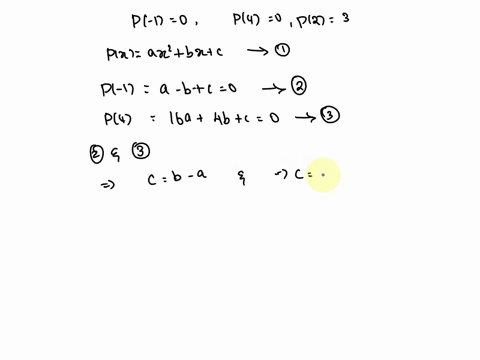 P(-1) = 0, P(4) = 0, P(2) = 3
P(x) = ax² + bx + c → ①
P(-1) = a - b + c = 0 → ②
P(4) = 16a + 4b + c = 0 → ③
② & ③
⇒ c = b - a & → c =